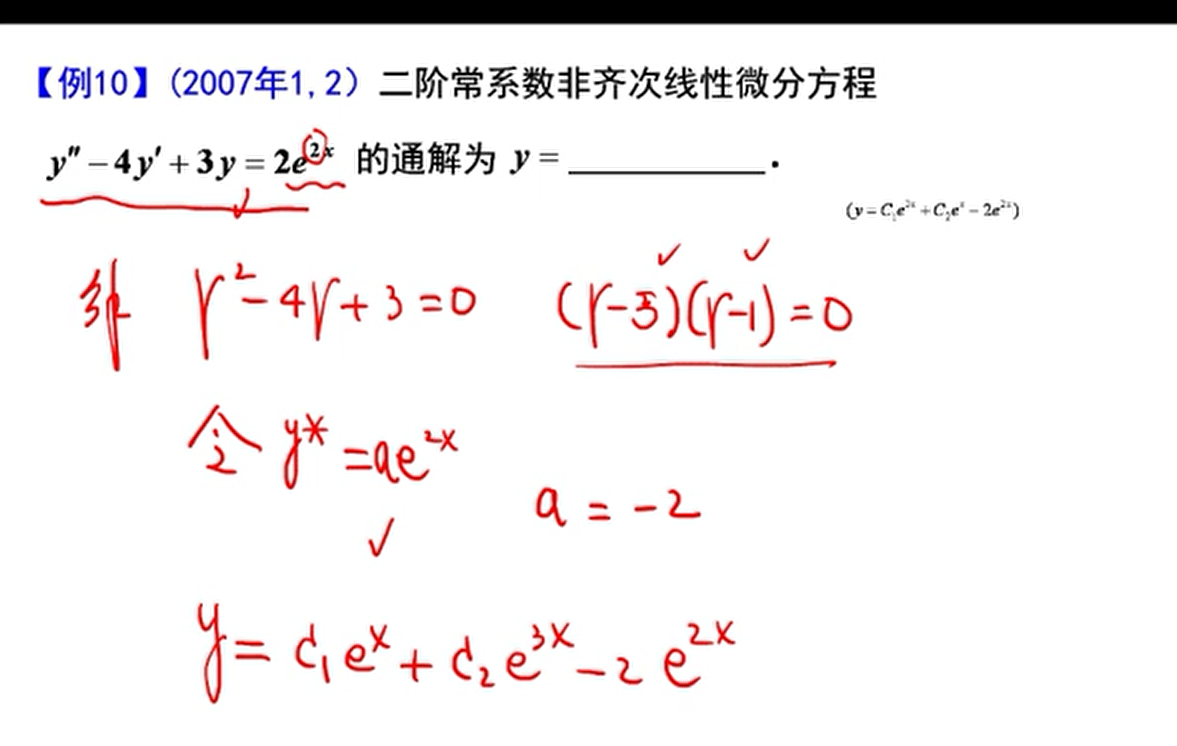 【例10】(2007年1,2) 二阶常系数非齐次线性微分方程
y″ − 4y′ + 3y = 2e^{2x} 的通解为 y = ________.
(y = C₁e^{2x} + C₂e^{x} − 2e^{2x})
解 r² − 4r + 3 = 0 (r−3)(r−1) = 0
令 y* = ae^{2x}
a = −2
y = C₁e^{x} + C₂e^{3x} − 2e^{2x}